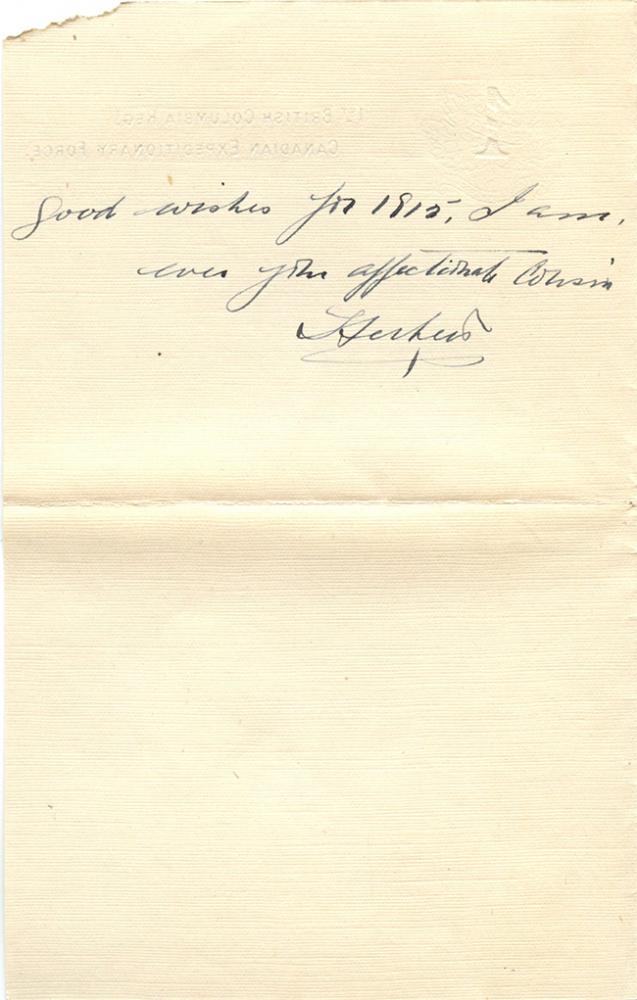 1ST BRITISH COLUMBIA REGT
CANADIAN EXPEDITIONARY FORCE.
good wishes for 1915, I am,
ever your affectionate Cousin
Herbert